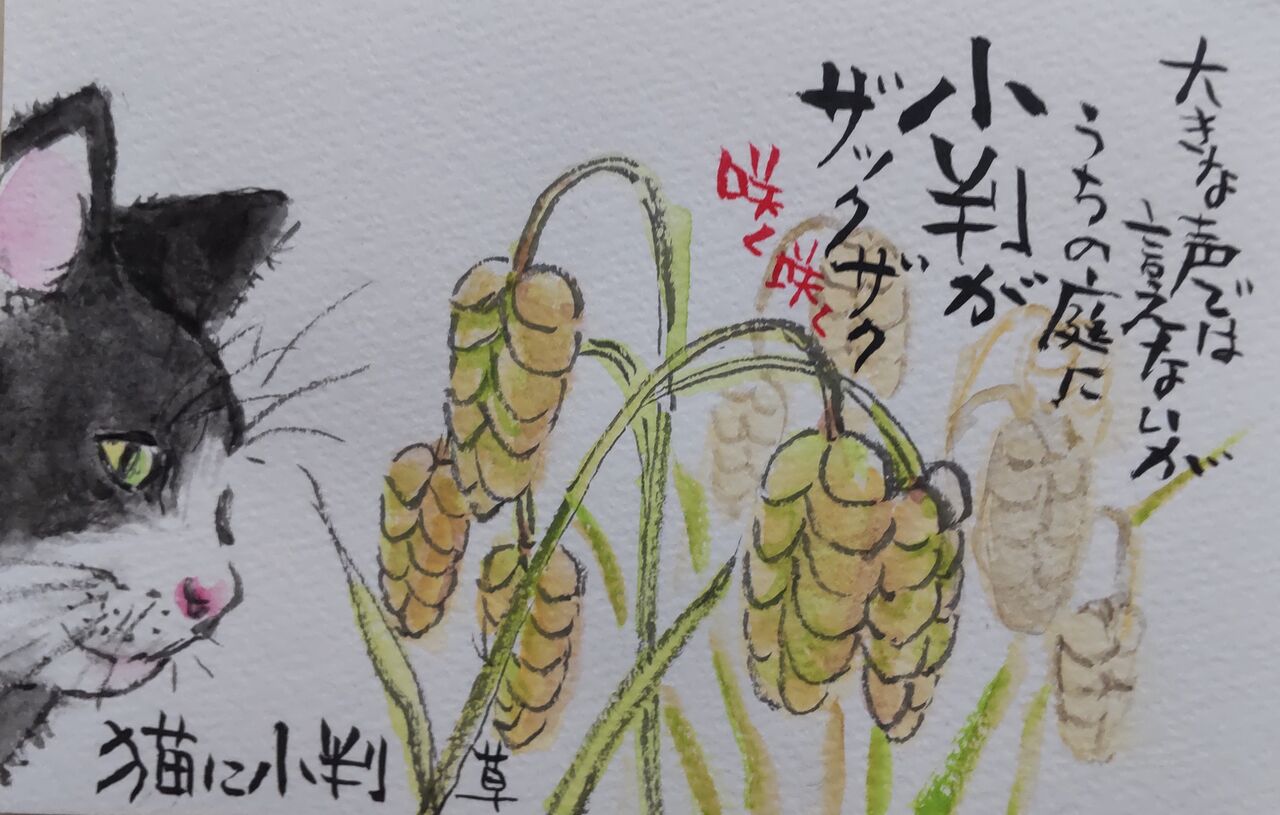 大きな声では
言えないが
うちの庭に
小判が
ザックザク
咲く咲く
猫に小判
草